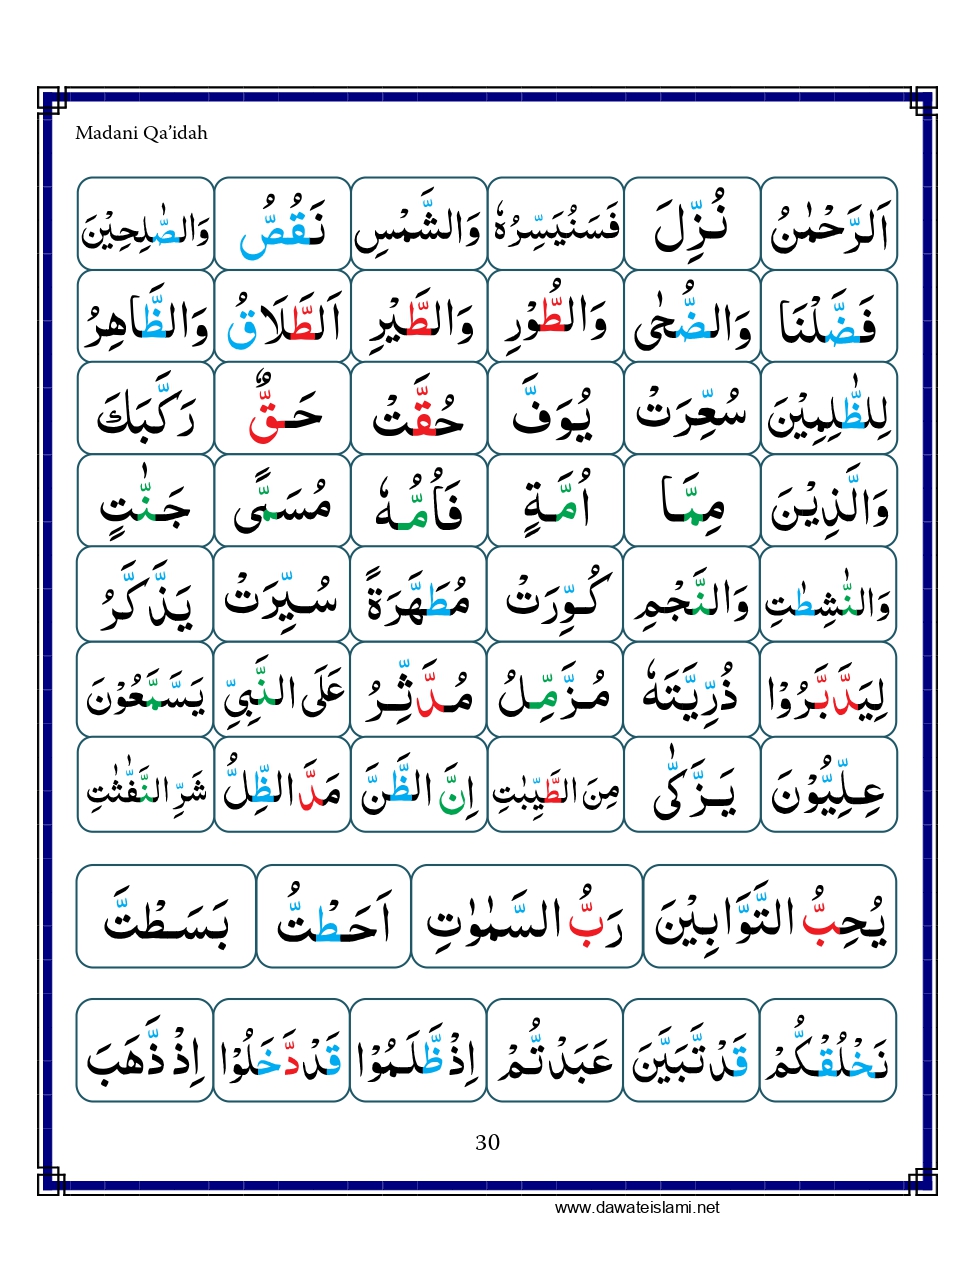 Madani Qa’idah
اَلرَّحْمٰنُ نُزِّلَ فَسَنُيَسِّرُهٗ وَالشَّمْسِ نَقُصُّ وَالصّٰلِحِيْنَ
فَضَّلْنَا وَالضُّحٰى وَالطُّوْرِ وَالطَّيْرِ اَلطَّلَاقُ وَالظَّاهِرُ
لِلظّٰلِمِيْنَ سُعِّرَتْ يُوَفَّ حُقَّتْ حَقٌّ رَكَّبَكَ
وَالَّذِيْنَ مِمَّا اُمَّةٍ فَاُمُّهٗ مُسَمًّى جَنّٰتٍ
وَالنّٰشِطٰتِ وَالنَّجْمِ كُوِّرَتْ مُطَهَّرَةً سُيِّرَتْ يَذَّكَّرُ
لِيَدَّبَّرُوْا ذُرِّيَّتَهٗ مُزَّمِّلُ مُدَّثِّرُ عَلَى النَّبِيِّ يَسَّمَّعُوْنَ
عِلِّيُّوْنَ يَزَّكّٰى مِنَ الطَّيِّبٰتِ اِنَّ الظَّنَّ مَدَّ الظِّلَّ شَرِّ النَّفّٰثٰتِ
يُحِبُّ التَّوَّابِيْنَ رَبُّ السَّمٰوٰتِ اَحَطْتُّ بَسَطْتَّ
نَخْلُقْكُّمْ قَدْتَّبَيَّنَ عَبَدْتُّمْ اِذْظَّلَمُوْا قَدْدَّخَلُوْا اِذْذَّهَبَ
30
www.dawateislami.net